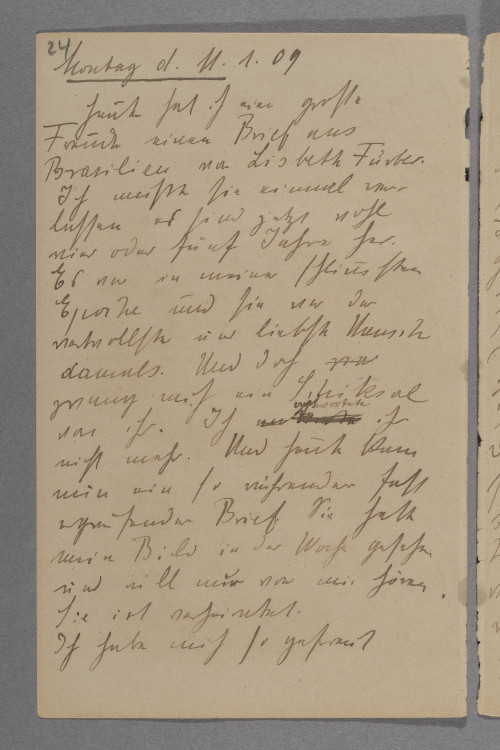 24
Montag d. 11.1.09
Heute hat ich eine grosse
Freude einen Brief aus
Brasilien von Lisbeth Fürber.
Ich musste sie einmal ver-
lassen es sind jetzt wohl
vier oder fünf Jahre her.
Es war in meiner schlimmsten
Epoche und sie war der
wertvollste und liebste Mensch
damals. Und doch war
zwang mich ein Schiksal
von ihr. Ich antwortete ihr
nicht mehr. Und heute kam
nun ein so rührender fast
ergreifender Brief. Sie hatte
mein Bild in der Woche gesehen
und will nur von mir hören.
Sie ist verheiratet.
Ich habe mich so gefreut